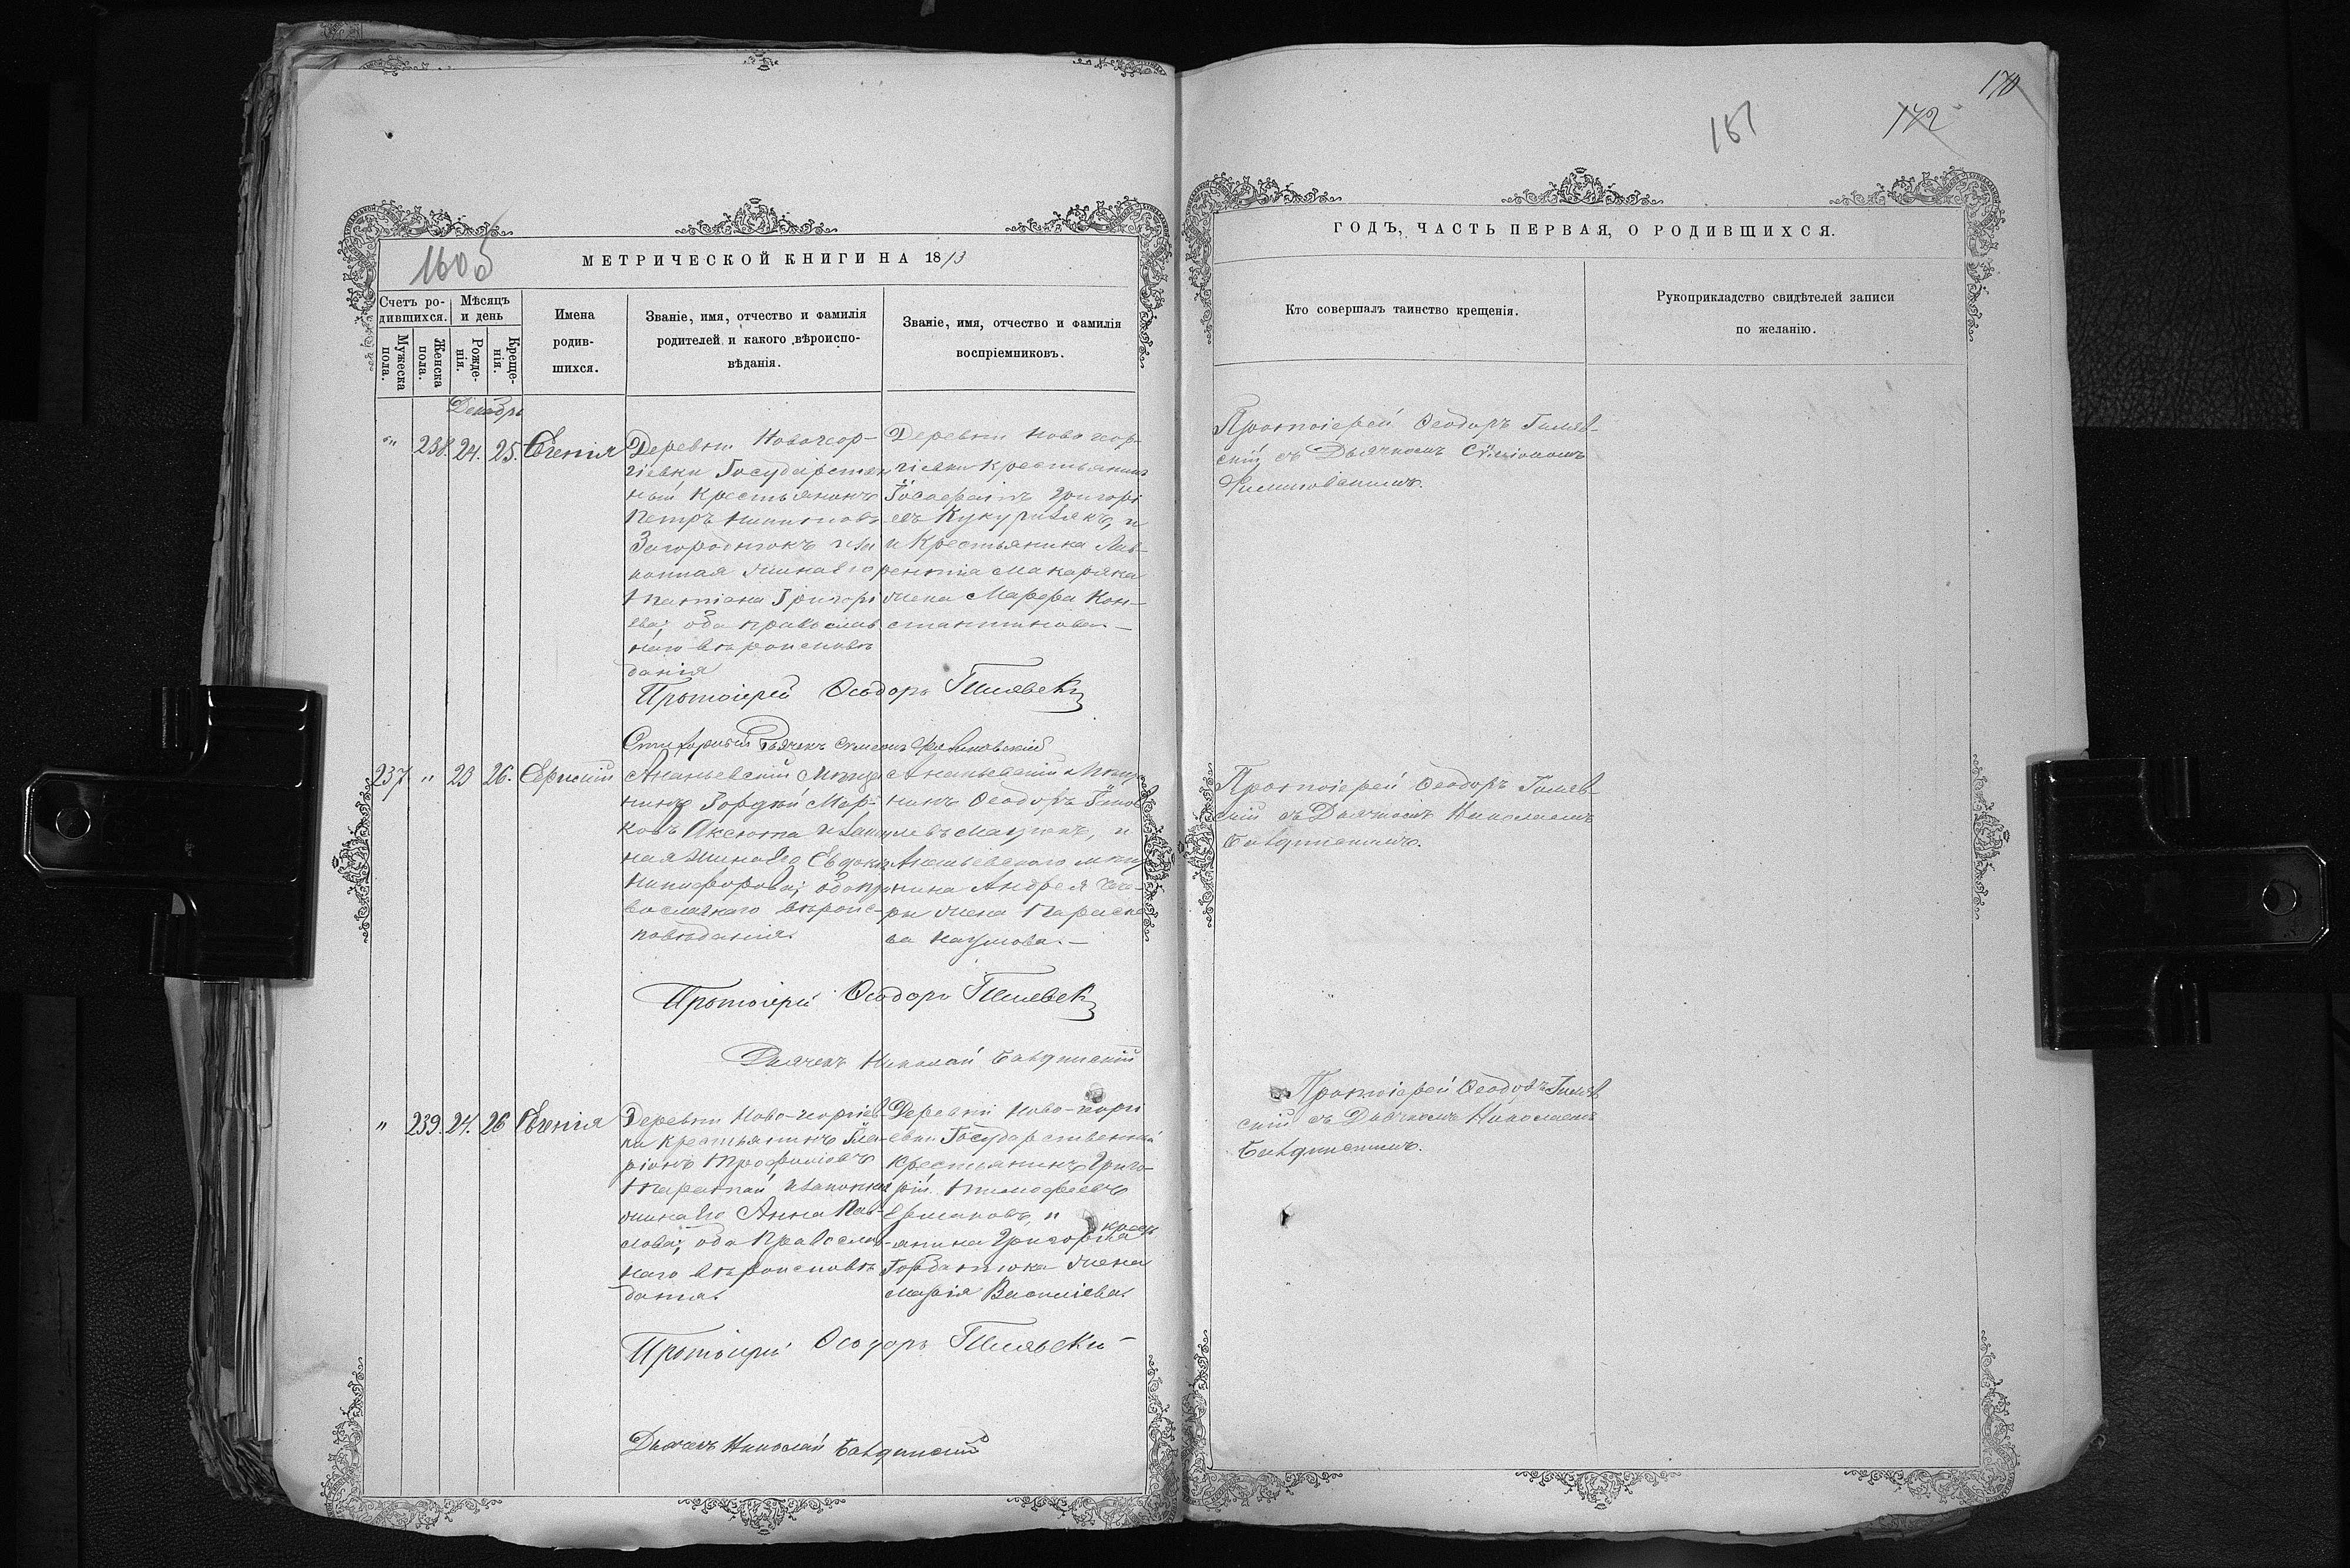 170
172
181
1605
МЕТРИЧЕСКОЙ КНИГИ НА 1873
Счетъ ро-
дившихся.
Мѣсяцъ
и день
Мужеска
пола.
Женска
пола.
Рожде-
нія.
Креще-
нія.
Имена
родив-
шихся.
Званіе, имя, отчество и фамилія
родителей и какого вѣроиспо-
вѣданія.
Званіе, имя, отчество и фамилія
воспріемниковъ.
Декабрь
" 238. 24. 25. Евгенія
Деревни Новогеор-
гіевки Государствен
ный крестьянинъ
Петръ Никитовъ
Загороднюкъ и за
конная жина его
Татіана Григорі
ева; оба православ
наго вѣроисповѣ
данія
Деревни Новогеор-
гіевки крестьянинъ
Іосафатъ Григорі
евъ Кукурузякъ, и
и крестьянина Лав-
рентія Макаряка
жена Марфа Кон-
стантинова.—
Протоіерей Ѳеодоръ Гиляевск
Дьячекъ Симеонъ Филиповскій
237 " 23 26. Евгеній
Ананьевскій Мѣща
нинъ Гордѣй Мар-
ковъ Аксюта и закон
ная жина его Евдокія
Никифорова; оба пра
вославнаго вѣроис-
повѣданія.
Ананьевскій Мѣща
нинъ Ѳеодоръ
и
Ананьевскаго мѣща
нина Андрея
жена Параске
ва Наумова.—
Протоіерей Ѳеодоръ Гиляевск
Дьячекъ Николай Бандинскій
" 239. 24. 26 Евгенія
Деревни Ново-георгіев-
ки крестьянинъ Ила-
ріонъ Трофимовъ
Таранъ и законная
жина его Анна Пав-
лова; оба православ-
наго вѣроисповѣ
данія.
Деревни Ново-георгі
евки Государственный
крестьянинъ Григо-
рій Тимофеевъ
Ермаковъ, и кресть
янина Григорія
Горданюка жена
Марія Василіева.
Протоіерей Ѳеодоръ Гиляевскій
Дьячекъ Николай Бандинскій
ГОДЪ, ЧАСТЬ ПЕРВАЯ, О РОДИВШИХСЯ.
Кто совершалъ таинство крещенія.
Рукоприкладство свидѣтелей записи
по желанію.
Протоіерей Ѳеодоръ Гиляев-
скій съ Дьячкомъ Симіономъ
Филиповскимъ.
Протоіерей Ѳеодоръ Гиляев-
скій съ Дьячкомъ Николаемъ
Бандинскимъ.
Протоіерей Ѳеодоръ Гиляев
скій съ Дьячкомъ Николаемъ
Бандинскимъ.